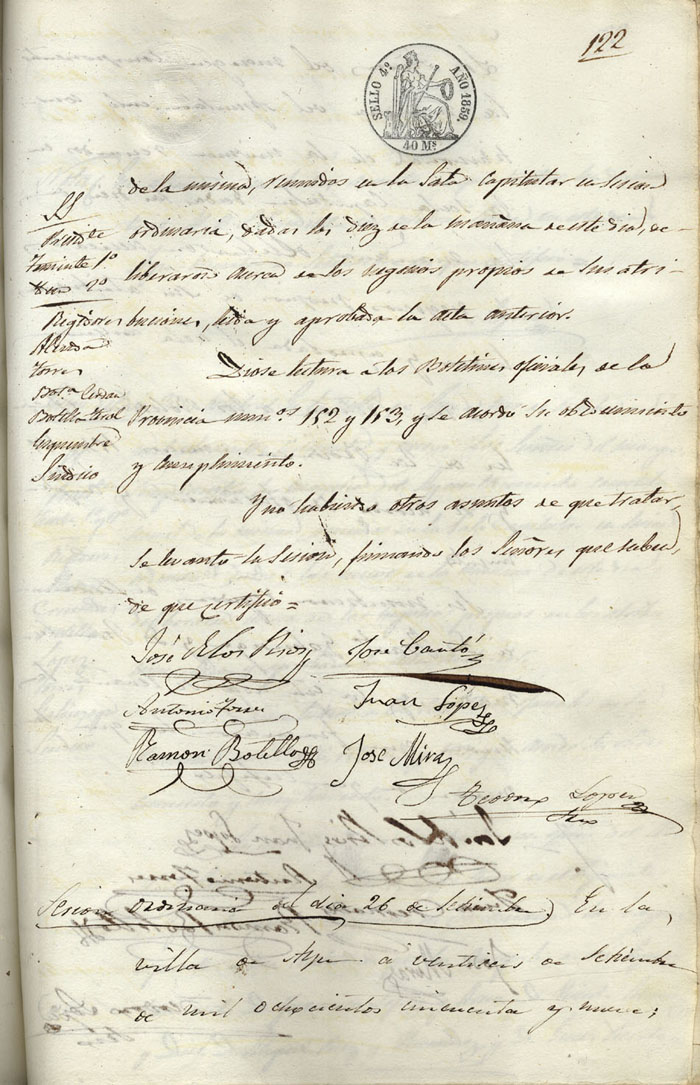 122
SELLO 4º AÑO 1859.
40 Ms
de la misma, reunidos en la Sala Capitular en Sesion
ordinaria, dadas las diez de la mañana de este dia, de-
liberaron acerca de los negocios propios de sus atri-
buciones, leida y aprobada la acta anterior.
Diose lectura a los Boletines oficiales de la
Provincia numos 152 y 153, y se acordó su obedecimiento
y cumplimiento.
Y no habiendo otros asuntos de que tratar,
se levanto la Sesion, firmando los Señores que saben,
de que certifico=
SS
Presidte
Teniente 1º
2º
Regidores
Torres
Botella
Síndico
José de los Rios
José Cantó
Antonio Torres
Juan López
Ramon Botella
José Mira
Lopez
Srio
Sesion Ordinaria del dia 26 de Setiembre) En la
villa de Aspe a veintiseis de Setiembre
de mil ochocientos cincuenta y nueve;